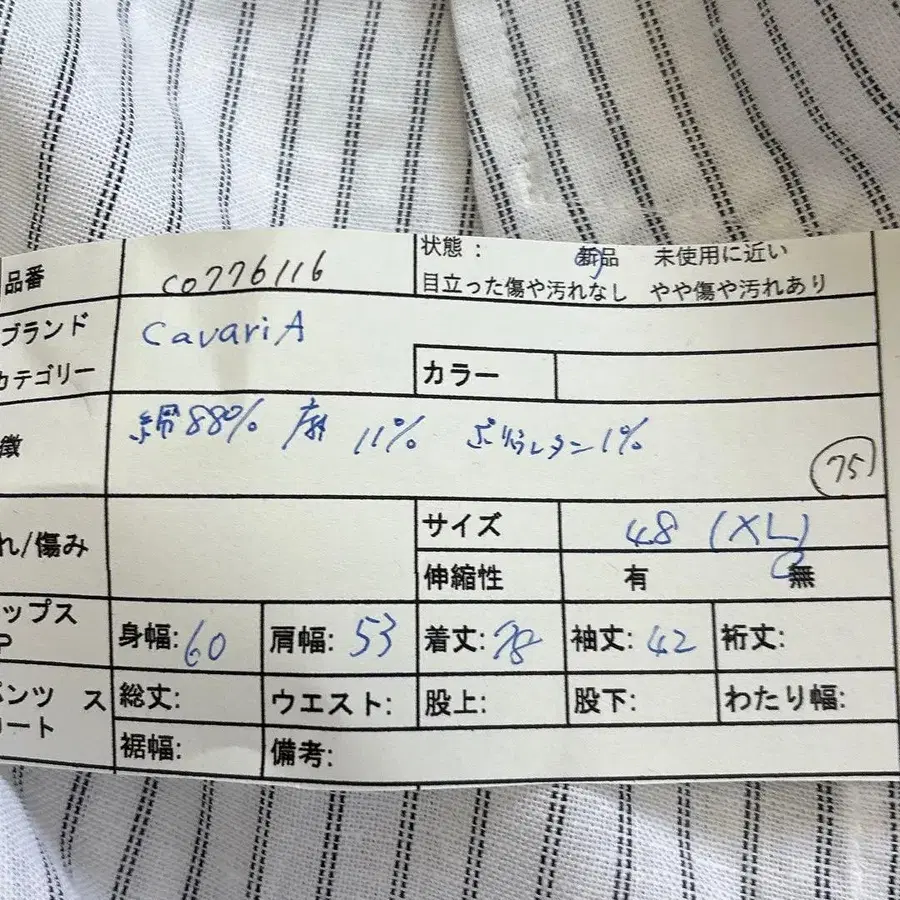 品番 CO776116 状態： 新品 未使用に近い
目立った傷や汚れなし やや傷や汚れあり
ブランド CavariA
カテゴリー カラー
徴 綿88% 麻 11% ポリウレタン1%
75
れ/傷み サイズ 48 (XL)
伸縮性 有 無
ップス
P 身幅: 60 肩幅: 53 着丈: 78 袖丈: 42 裄丈:
パンツ ス 総丈: ウエスト: 股上: 股下: わたり幅:
カート 裾幅: 備考: